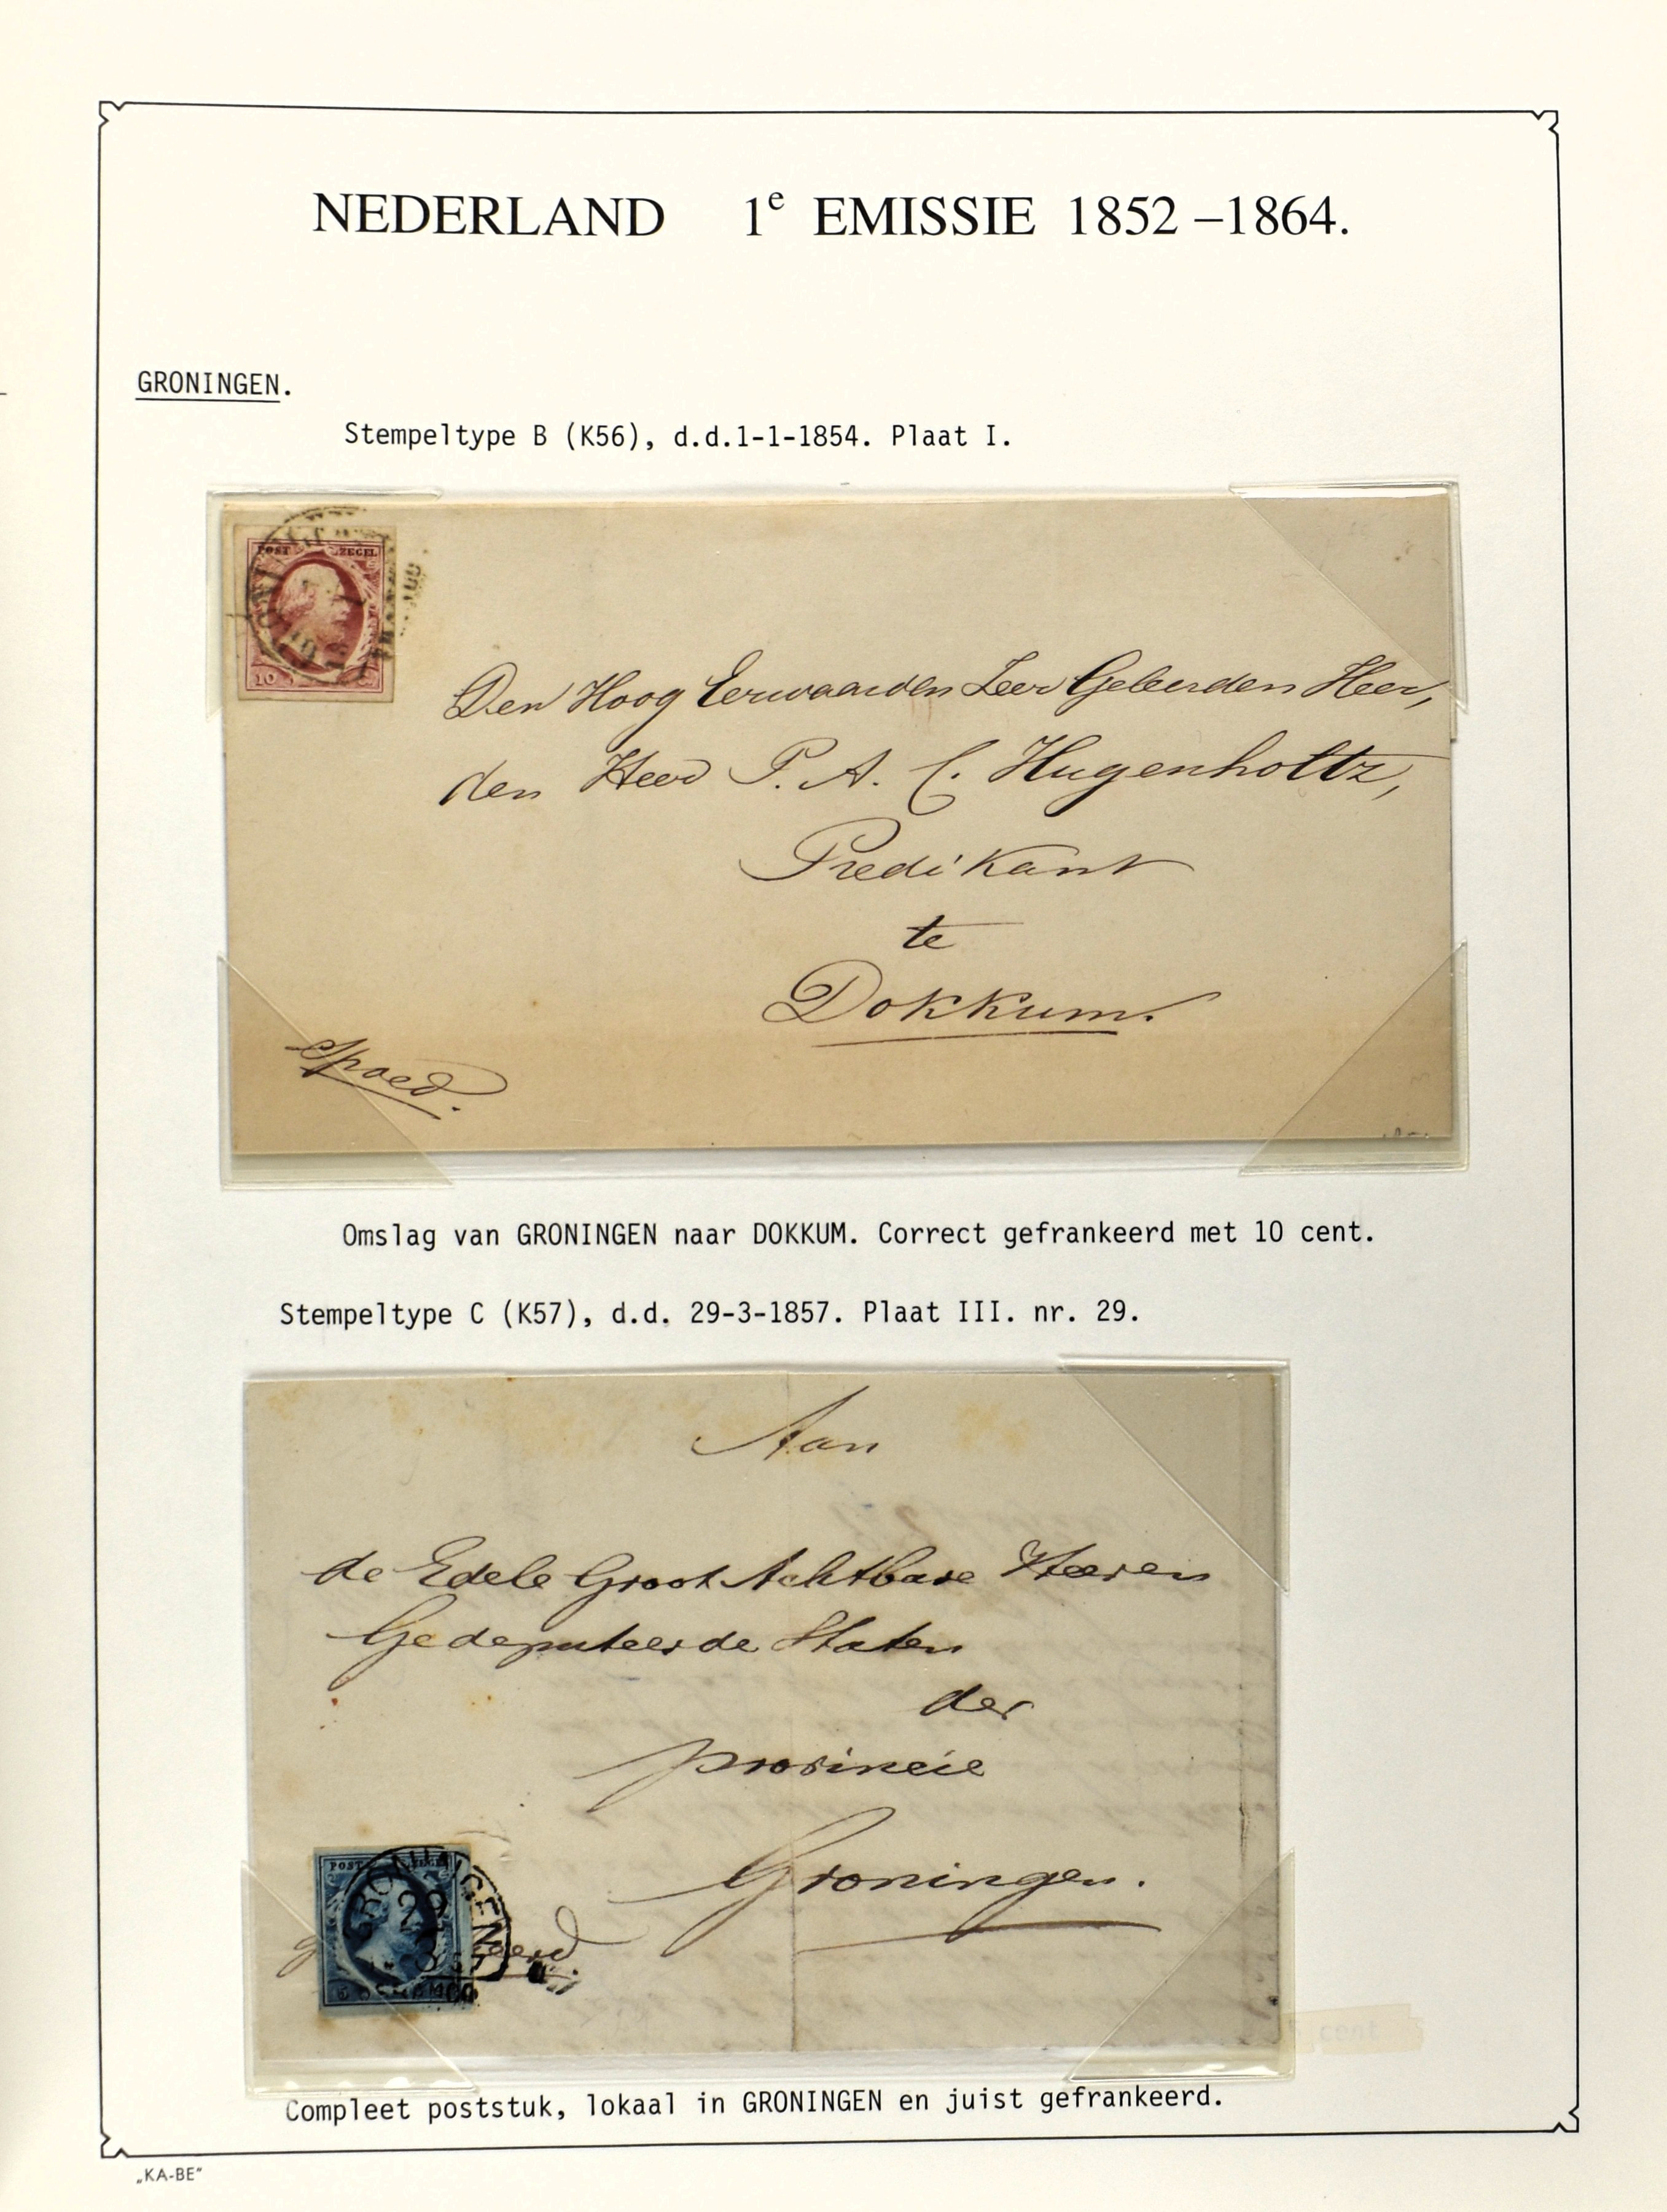 NEDERLAND 1e EMISSIE 1852–1864.
GRONINGEN.
Stempeltype B (K56), d.d.1-1-1854. Plaat I.
POST ZEGEL
10 C.
Den Hoog Eerwaarden Zeer Geleerden Heer,
den Heer P. A. C. Hugenholtz,
Predikant
te
Dokkum.
Spoed.
Omslag van GRONINGEN naar DOKKUM. Correct gefrankeerd met 10 cent.
Stempeltype C (K57), d.d. 29-3-1857. Plaat III. nr. 29.
Aan
de Edele Groot Achtbare Heeren
Gedeputeerde Staten
der
provincie
Groningen.
POST ZEGEL
GRONINGEN
29
3
5
cent
Compleet poststuk, lokaal in GRONINGEN en juist gefrankeerd.
„KA-BE"